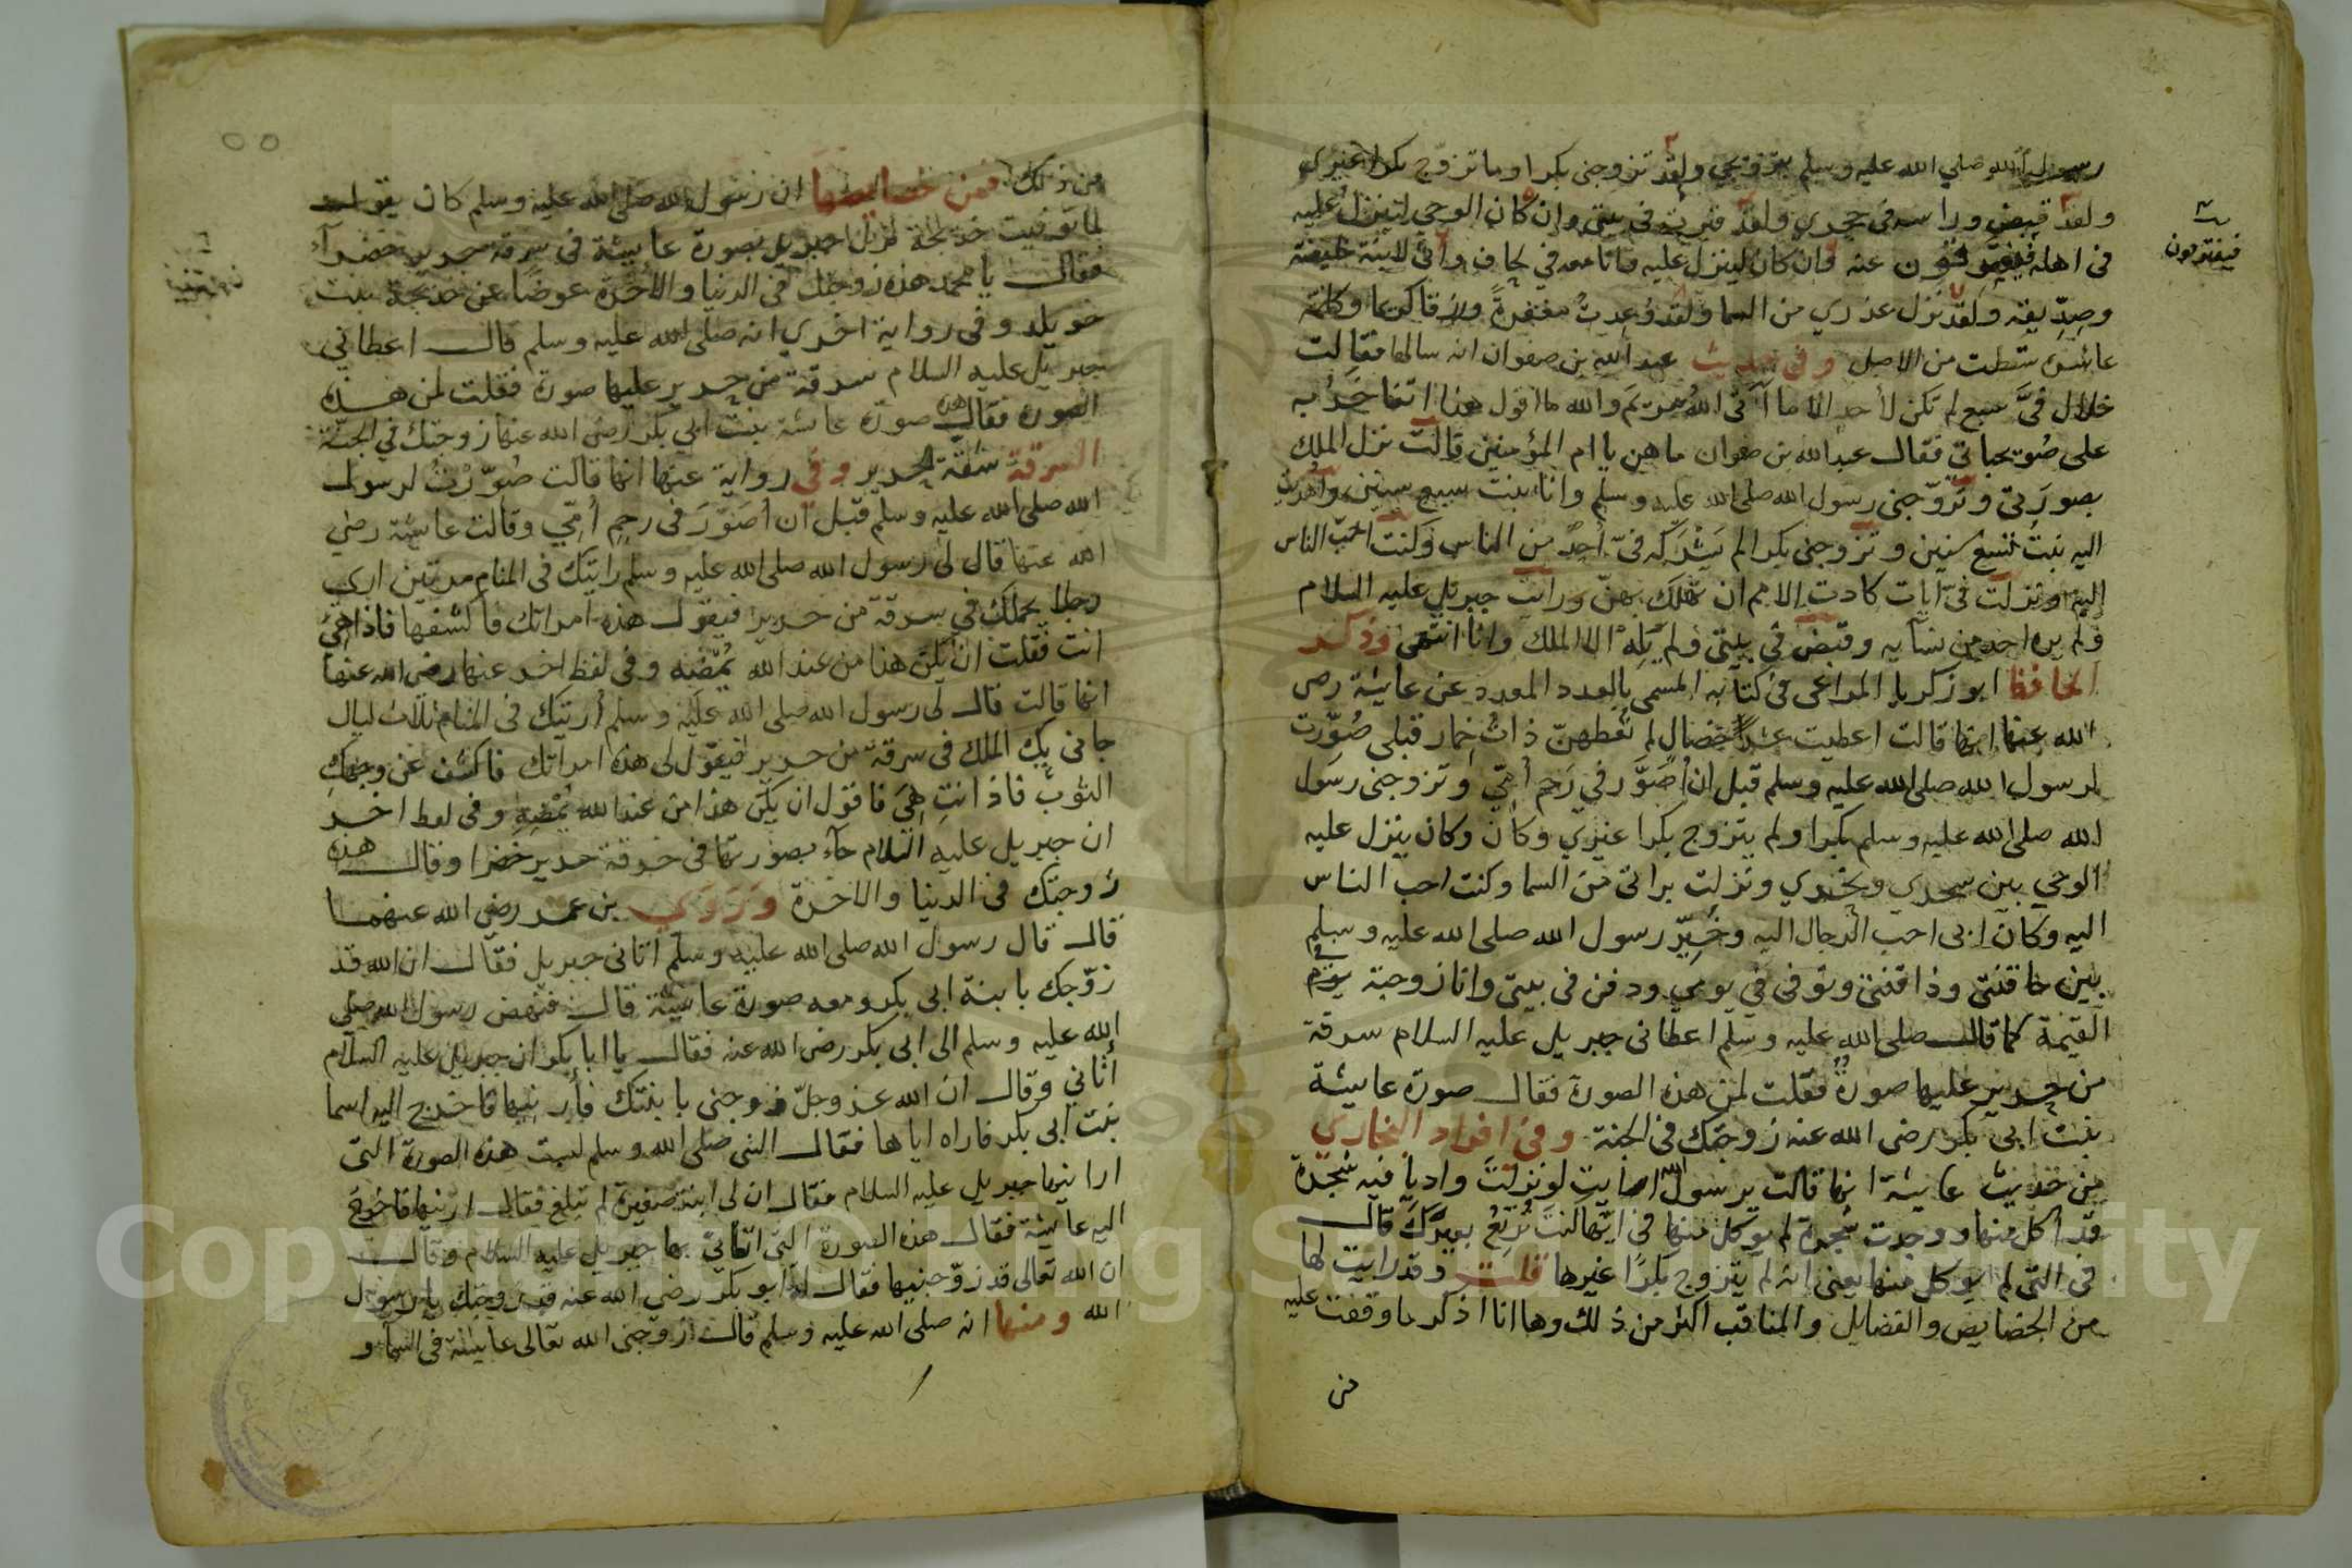 رسول الله صلي الله عليه وسلم يتزوجني ولقد تزوجني بكرا وما تزوج بكرا غيري
ولقد قبض وراسه في حجري ولقد قبرته في بيتي وان كان الوحي لينزل عليه
في اهله فيتفرقون عنه وان كان لينزل عليه وانا معه في لحافه وأني لابنة خليفته
وصديقه ولقد نزل عذري من السما ولقد وعدت مغفرة ورزقا كريما وكانه
عاشره سقطت من الاصل وفي حديث عبد الله بن صفوان انه سالها فقالت
خلال في سبع لم تكن لأحد الا ما آتى الله مريم والله ما اقول هذا اتفاخر به
على صويحباتي فقال عبد الله بن صفوان ما هن يا ام المؤمنين قالت نزل الملك
بصورتي وتزوجني رسول الله صلى الله عليه وسلم وانا بنت سبع سنين واهديت
اليه بنت تسع سنين وتزوجني بكرا لم يشركه في أحد من الناس وكنت احب الناس
اليه ونزلت في آيات كادت الامم ان تهلك بهن ورايت جبريل عليه السلام
ولم يره احد من نسايه وقبض في بيتي ولم يله الا الملك وانا انتهى وذكر
الحافظ ابو زكريا المراغى في كتابه المسمى بالعدد المعدد عن عايشة رضى
الله عنها انها قالت اعطيت عشر خصال لم تعطهن ذات خمار قبلي صورت
لرسول الله صلى الله عليه وسلم قبل ان أصور في رحم أمي وتزوجني رسول
الله صلى الله عليه وسلم بكرا ولم يتزوج بكرا غيري وكان وكان ينزل عليه
الوحي بين سحري ونحري ونزلت براتى من السما وكنت احب الناس
اليه وكان ابى احب الرجال اليه وخير رسول الله صلى الله عليه وسلم
بين حاقنتي وذاقنتي وتوفى في يومي ودفن في بيتي وانا زوجته في يوم
القيمة كما قال صلى الله عليه وسلم اعطانى جبريل عليه السلام سرقة
من حرير عليها صورة فقلت لمن هذه الصورة فقال صورة عايشة
بنت ابى بكر رضى الله عنه زوجتك في الجنة وفي افراد البخاري
من حديث عايشة انها قالت يرسول الله ارايت لو نزلت واديا فيه شجرة
قد اكل منها ووجدت شجرة لم يوكل منها في ايها كنت ترتع بعيرك قال
في التى لم يوكل منها يعنى انه لم يتزوج بكرا غيرها قلت وقد رايت لها
من الخصايص والفضايل والمناقب اكثر من ذلك وها انا اذكر ما وقفت عليه
من
فيتفرقون
من ذلك فمن خصايصها ان رسول الله صلى الله عليه وسلم كان يقول
لما توفيت خديجة نزل جبريل بصورة عايشة في سرقة حرير خضرآء
فقال يا محمد هذه زوجتك في الدنيا والآخرة عوضا عن خديجة بنت
خويلد وفي رواية اخري انه صلى الله عليه وسلم قال اعطاني
جبريل عليه السلام سرقة من حرير عليها صورة فقلت لمن هذه
الصورة فقال هذه صورة عائشة بنت ابي بكر رضي الله عنها زوجتك في الجنة
السرقة شقة الحرير وفي رواية عنها انها قالت صورت لرسول
الله صلى الله عليه وسلم قبل ان أصور في رحم أمي وقالت عائشة رضي
الله عنها قال لي رسول الله صلى الله عليه وسلم رايتك في المنام مرتين ارى
رجلا يحملك في سرقة من حرير فيقول هذه امراتك فاكشفها فاذا هي
انت فقلت ان يكن هذا من عند الله يمضه وفي لفظ اخر عنها رضي الله عنها
انها قالت قال لي رسول الله صلى الله عليه وسلم أريتك في المنام ثلاث ليال
جاني بك الملك في سرقة من حرير فيقول لي هذه امراتك فاكشف عن وجهك
الثوب فاذا انت هي فاقول ان يكن هذا من عند الله يمضه وفي لفظ اخر
ان جبريل عليه السلام جآء بصورتها في خرقة حرير خضرا وقال هذه
زوجتك في الدنيا والاخرة وروي بن عمر رضى الله عنهما
قال قال رسول الله صلى الله عليه وسلم اتانى جبريل فقال ان الله قد
زوجك بابنة ابى بكر ومعه صورة عايشة قال فنهض رسول الله صلى
الله عليه وسلم الى ابى بكر رضى الله عنه فقال يا ابا بكر ان جبريل عليه السلام
أتاني وقال ان الله عز وجل زوجني بابنتك فأرنيها فاخرج اليه اسما
بنت ابى بكر فاراه اياها فقال النبي صلى الله وسلم ليست هذه الصورة التى
ارانيها جبريل عليه السلام فقال ان لي ابنة صغيرة لم تبلغ فقال ارنيها فاخرج
اليه عايشة فقال هذه الصورة التى اتانى بها جبريل عليه السلام وقال
ان الله تعالى قد زوجنيها فقال له ابو بكر رضي الله عنه قد زوجتك يا رسول
الله ومنها انه صلى الله عليه وسلم قال زوجني الله تعالى عايشة في السمآء و
Copyright © King Saud University